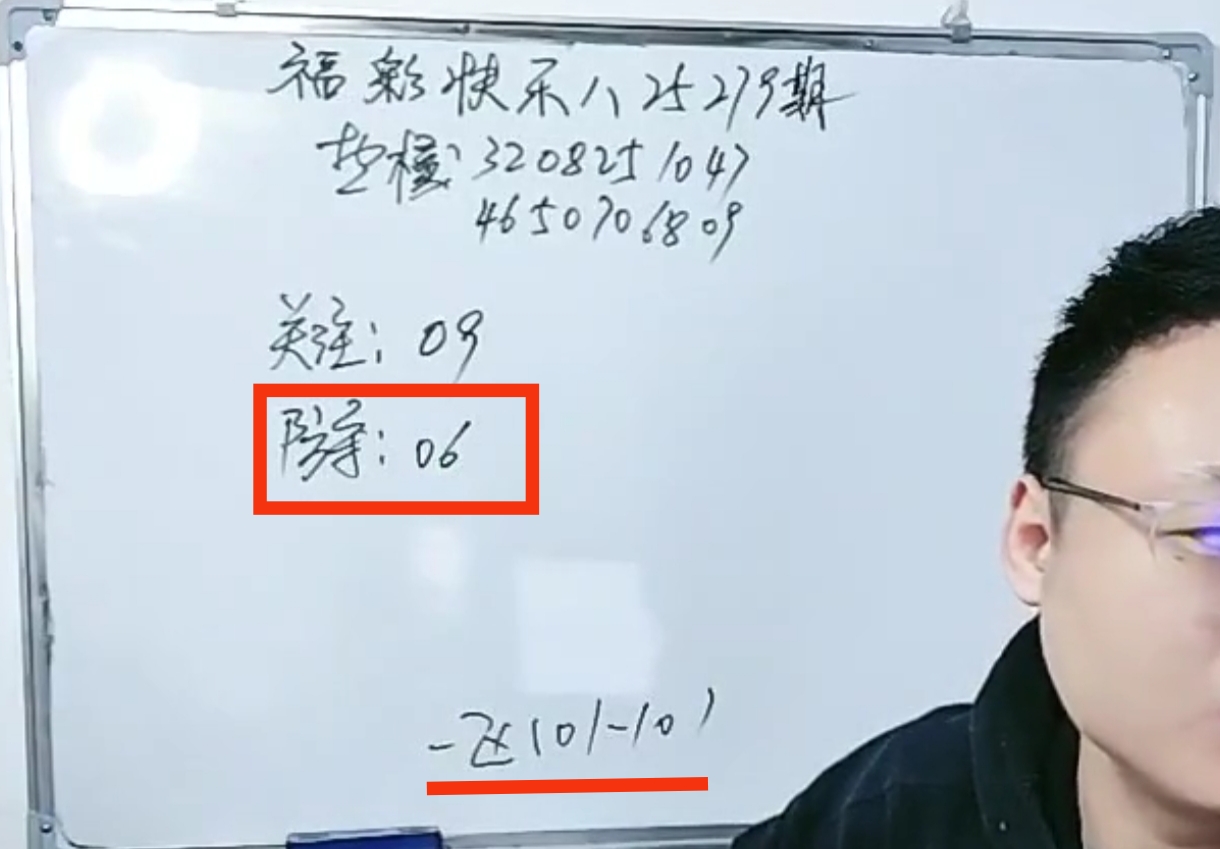 福彩快乐八25279期
垫檬: 3208251047
4650706809
关注: 09
防守: 06
一区(01-10)